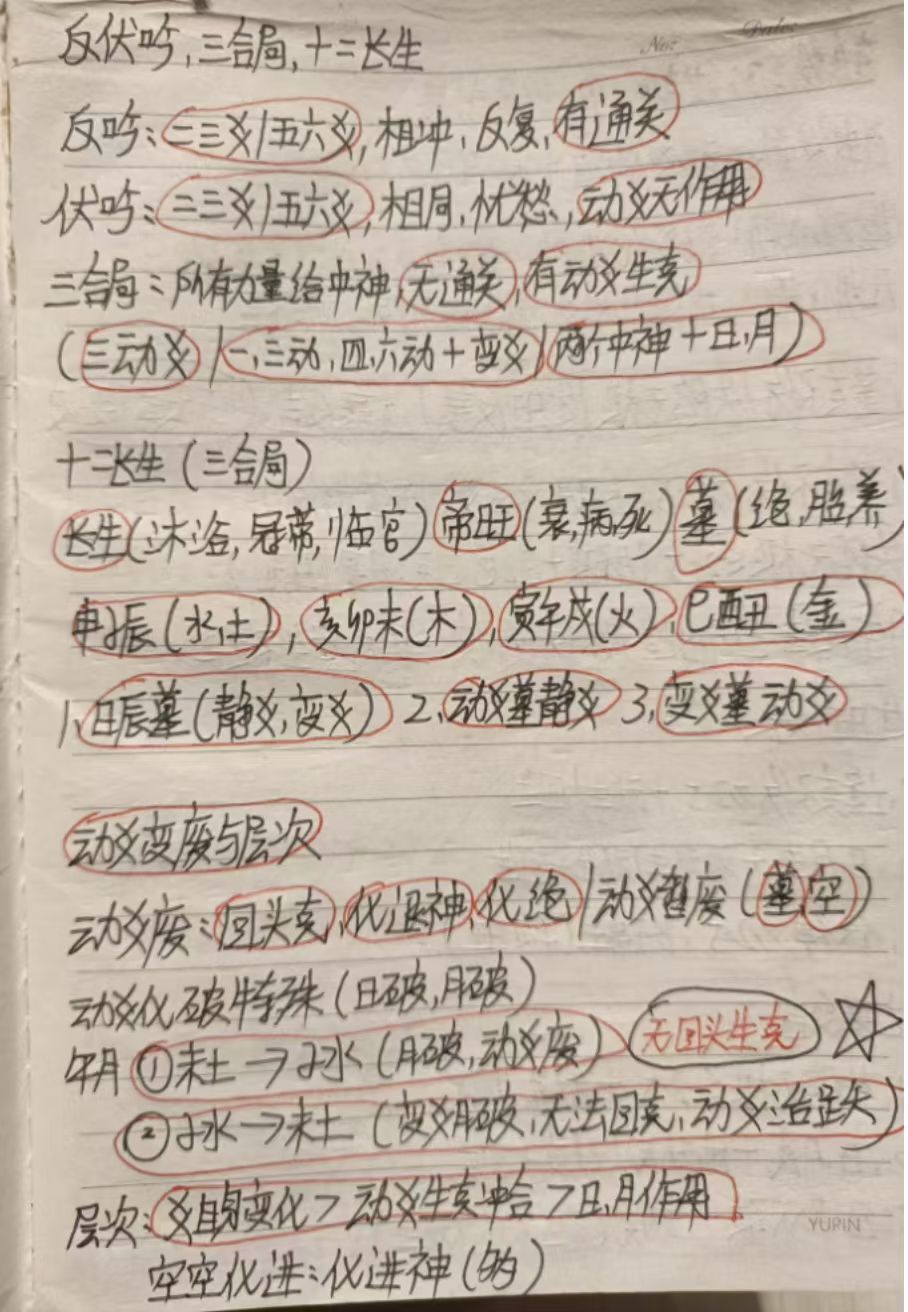 No: Date:
反伏吟,三合局,十二长生
反吟:二三爻|五六爻,相冲、反复、有通关
伏吟:二三爻|五六爻,相同,忧愁,动爻无作用
三合局:所有力量给中神,无通关,有动爻生克
(三动爻|一、三动,四、六动+变爻|两个中神+日、月)
十二长生(三合局)
长生(沐浴,冠带,临官)帝旺(衰,病,死)墓(绝,胎,养)
申子辰(水,土),亥卯未(木),寅午戌(火),巳酉丑(金)
1、日辰墓(静爻,变爻) 2、动爻墓静爻 3、变爻墓动爻
动爻变废与层次
动爻废:回头克,化退神,化绝|动爻暂废(墓,空)
动爻化破特殊(日破,月破)
午月①未土→子水(月破,动爻废) 无回头生克
②子水→未土(变爻月破,无法回克,动爻治跌)
层次:爻自身变化>动爻生克冲合>日、月作用
空空化进:化进神(的)
YUPIN